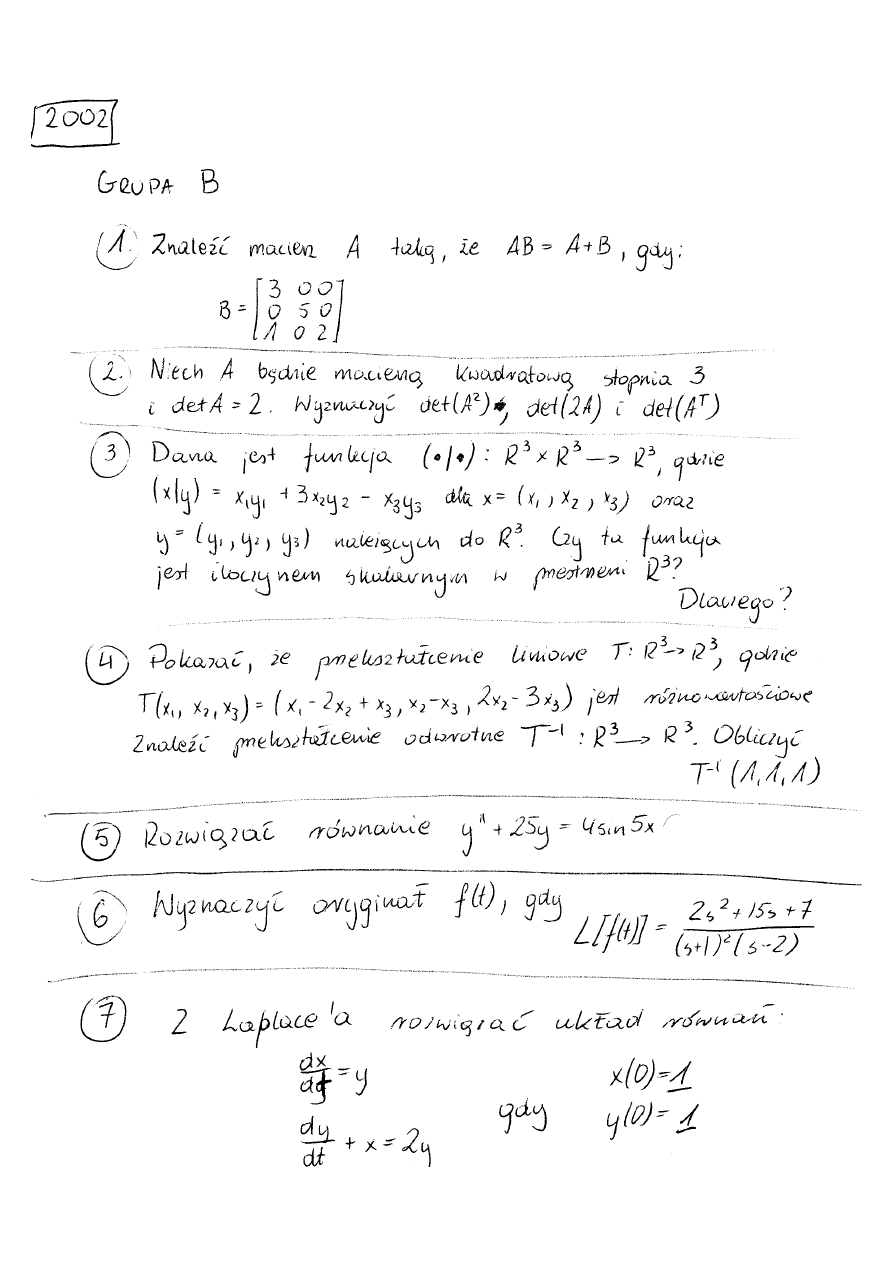 2002
GRUPA B
1. Znaleźć macierz A taką, że AB = A+B, gdy:
B = [3 0 0
0 5 0
1 0 2]
2. Niech A będzie macierzą kwadratową stopnia 3
i det A = 2. Wyznaczyć det(A²), det(2A) i det(Aᵀ)
3 Dana jest funkcja (•|•) : R³ × R³ —> R³, gdzie
(x|y) = x₁y₁ + 3x₂y₂ - x₃y₃ dla x = (x₁, x₂, x₃) oraz
y = (y₁, y₂, y₃) należących do R³. Czy ta funkcja
jest iloczynem skalarnym w przestrzeni R³?
Dlaczego?
4 Pokazać, że przekształcenie liniowe T: R³ -> R³, gdzie
T(x₁, x₂, x₃) = (x₁ - 2x₂ + x₃, x₂ - x₃, 2x₂ - 3x₃) jest różnowartościowe
Znaleźć przekształcenie odwrotne T⁻¹ : R³ —> R³. Obliczyć
T⁻¹ (1, 1, 1)
5 Rozwiązać równanie y'' + 25y = 4sin5x
6 Wyznaczyć oryginał f(t), gdy L[f(t)] = (2s² + 15s + 7)/((s+1)²(s-2))
7 Z Laplace'a rozwiązać układ równań:
dx/dt = y x(0) = 1
gdy
dy/dt + x = 2y y(0) = 1